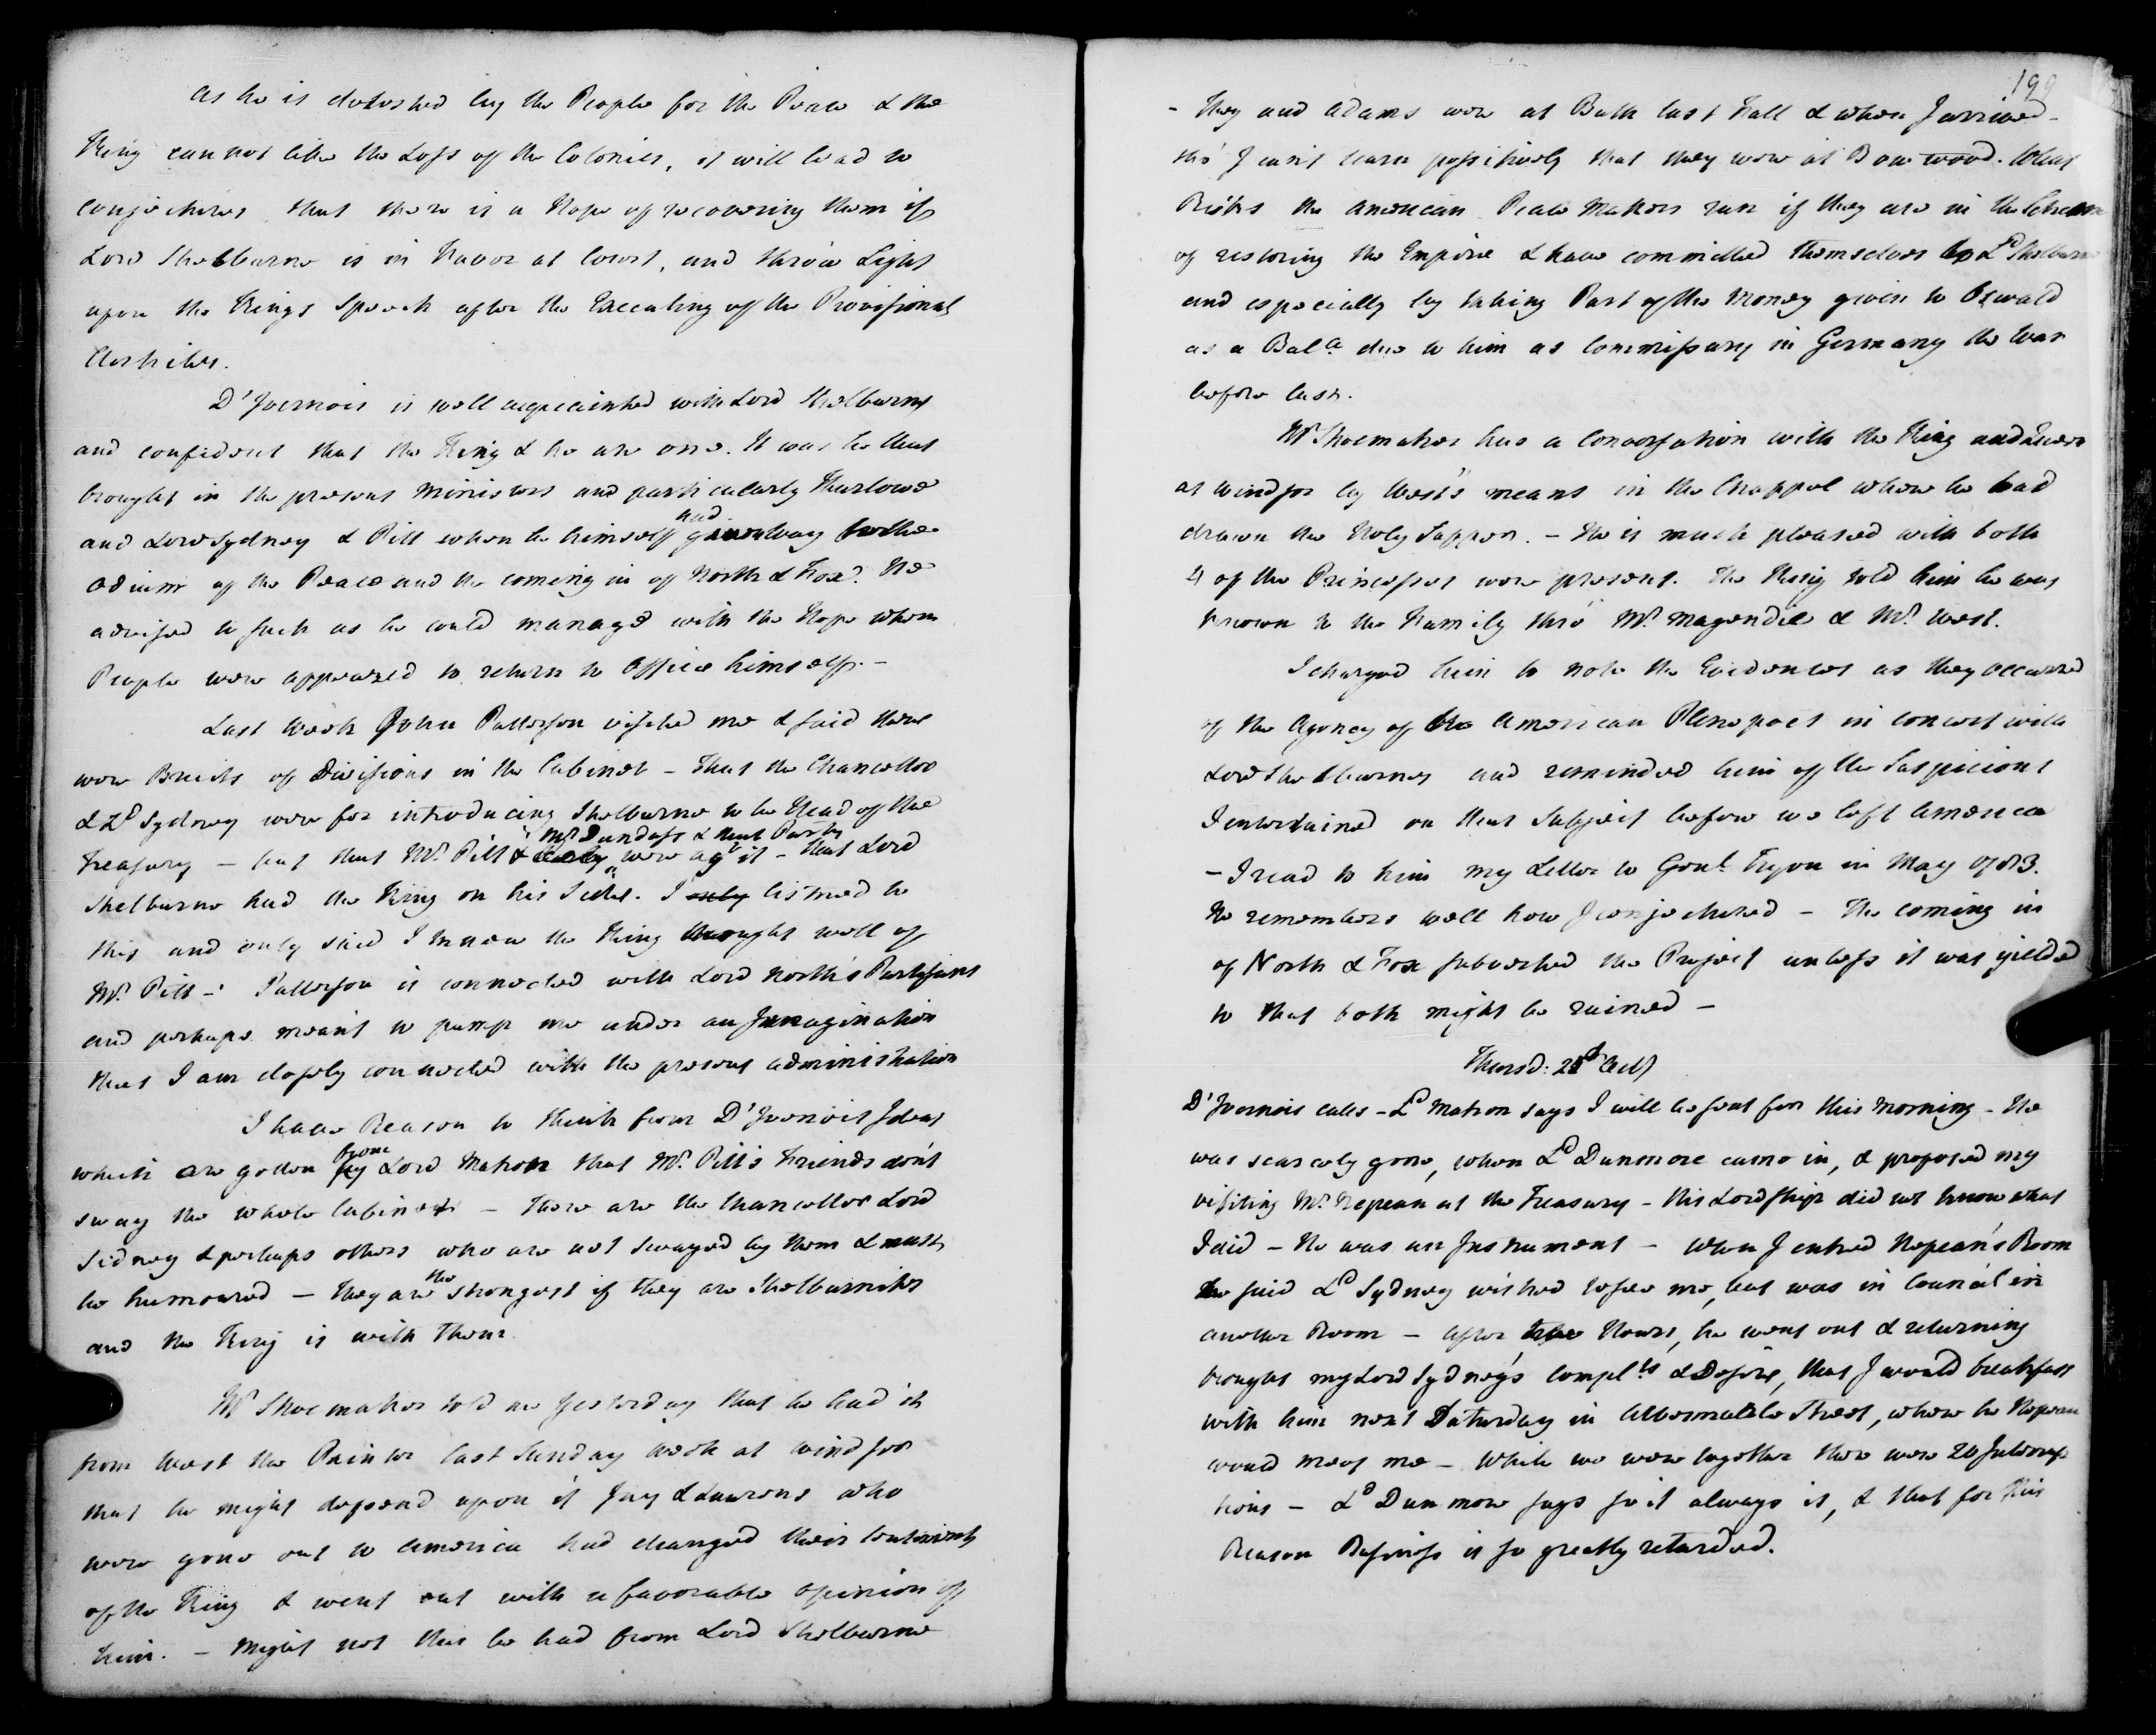 As he is detested by the People for the Peace & the
King cannot like the Loss of the Colonies, it will lead to
conjectures that there is a Hope of recovering them if
Lord Shelburne is in Favor at Court, and throw Light
upon the Kings Speech after the Executing of the Provisional
Articles.
D'Ivernois is well acquainted with Lord Shelburne
and confident that the King & he are one. It was he that
brought in the present Ministers and particularly Thurlowe
and Lord Sydney & Pitt when he himself had given way to the
odium of the Peace and the coming in of North & Fox. He
advised to such as he could manage with the Hope when
People were appeazed to return to Office himself. -
Last Week John Patterson visited me & said there
were Bruits of Divisions in the Cabinet - That the Chancellor
& Ld Sydney were for introducing Shelburne to be Head of the
Treasury - but that Mr. Pitt & Mr Dundass & that Party were agt it - that Lord
Shelburne had the King on his Side. I only listned to
this and only said I knew the King thought well of
Mr. Pitt - Patterson is connected with Lord North's Partizans
and perhaps meant to pump me under an Immagination
that I am closely connected with the present Administration
I have Reason to think from D'Ivernois Ideas
which are gotten by from Lord Mahon that Mr. Pitt's Friends dont
sway the whole Cabinet - There are the Chancellor Lord
Sidney & perhaps others who are not swayed by them & must
be humoured - They are the strongest if they are Shelburnites
and the King is with Them
Mr Shoemaker told me Yesterday that he had it
from West the Painter last Sunday Week at Windsor
that he might depend upon it Jay & Laurens who
were gone out to America had changed their Sentiments
of the King & went out with a favorable opinion of
him. - Might not this be had from Lord Shelburne
199
- They and Adams were at Bath last Fall & when I arrived -
tho' I can't learn possitively that they were at Bow wood. What
Risks the American Peace Makers run if they are in the Scheme
of restoring the Empire & have committed themselves to Ld Shelburne
and especially by taking Part of the Money given to Oswald
as a Balce due to him as Commissary in Germany the War
before last.
Mr Shoemaker has a Conversation with the King and Queen
at Windsor by West's means in the Chappel where he had
drawn the Holy Supper. - He is much pleased with both
4 of the Princesses were present. The King told him he was
known to the Family thro' Mr. Magendie & Mr. West.
I charged him to note the Evidences as they occurred
of the Agency of the American Plenepoes in concert with
Lord Shelburne and reminded him of the Suspicions
I entertained on that Subject before we left America
- I read to him my Letter to Genl. Tryon in May 1783.
He remembers well how I conjectured - The coming in
of North & Fox subverted the Project unless it was yielded
to that both might be ruined -
Thursd: 21st Octr
D'Ivernois calls - Ld Mahon says I will be sent for this morning - He
was scarcely gone, when Ld Dunmore came in, & proposed my
visiting Mr. Nepean at the Treasury - His Lordship did not know what
I did - He was an Instrument - When I entred Nepean's Room
he said Ld Sydney wished to see me, but was in Council in
another Room - After two Hours, he went out & returning
brought my Lord Sydney's Complts & Desire, that I would breakfast
with him next Saturday in Albermarle Street, where he Nepean
would meet me - While we were together there were 20 Interrup
tions - Ld Dunmore says so it always is, & that for this
Reason Business is so greatly retarded.